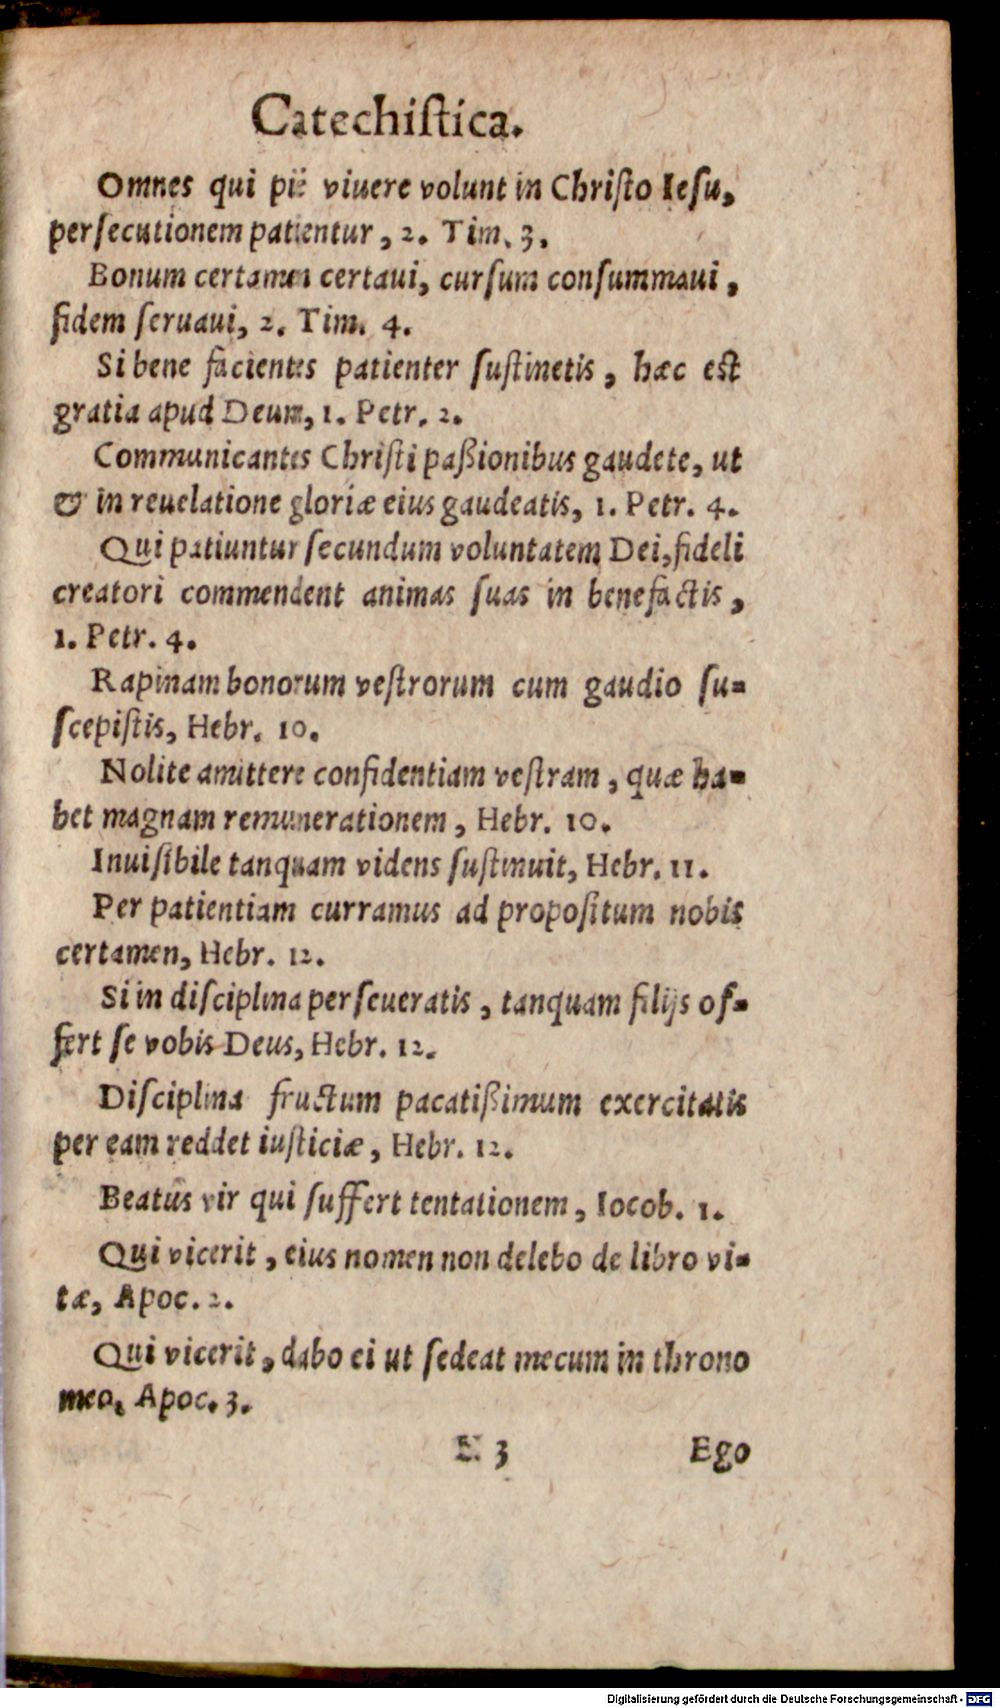 Catechiſtica.
Omnes qui piè viuere volunt in Chriſto Ieſu,
perſecutionem patientur, 2. Tim. 3.
Bonum certamen certaui, curſum conſummaui,
fidem ſeruaui, 2. Tim. 4.
Si bene facientes patienter ſuſtinetis, hæc eſt
gratia apud Deum, 1. Petr. 2.
Communicantes Chriſti paßionibus gaudete, ut
& in reuelatione gloriæ eius gaudeatis, 1. Petr. 4.
Qui patiuntur ſecundum voluntatem Dei, fideli
creatori commendent animas ſuas in benefactis,
1. Petr. 4.
Rapinam bonorum veſtrorum cum gaudio ſu-
ſcepiſtis, Hebr. 10.
Nolite amittere confidentiam veſtram, quæ ha-
bet magnam remunerationem, Hebr. 10.
Inuiſibile tanquam videns ſuſtinuit, Hebr. 11.
Per patientiam curramus ad propoſitum nobis
certamen, Hebr. 12.
Si in diſciplina perſeueratis, tanquam filijs of-
fert ſe vobis Deus, Hebr. 12.
Diſciplina fructum pacatißimum exercitatis
per eam reddet iuſticiæ, Hebr. 12.
Beatus vir qui ſuffert tentationem, Iocob. 1.
Qui vicerit, eius nomen non delebo de libro vi-
tæ, Apoc. 2.
Qui vicerit, dabo ei ut ſedeat mecum in throno
meo, Apoc. 3.
E 3 Ego
Digitalisierung gefördert durch die Deutsche Forschungsgemeinschaft - DFG